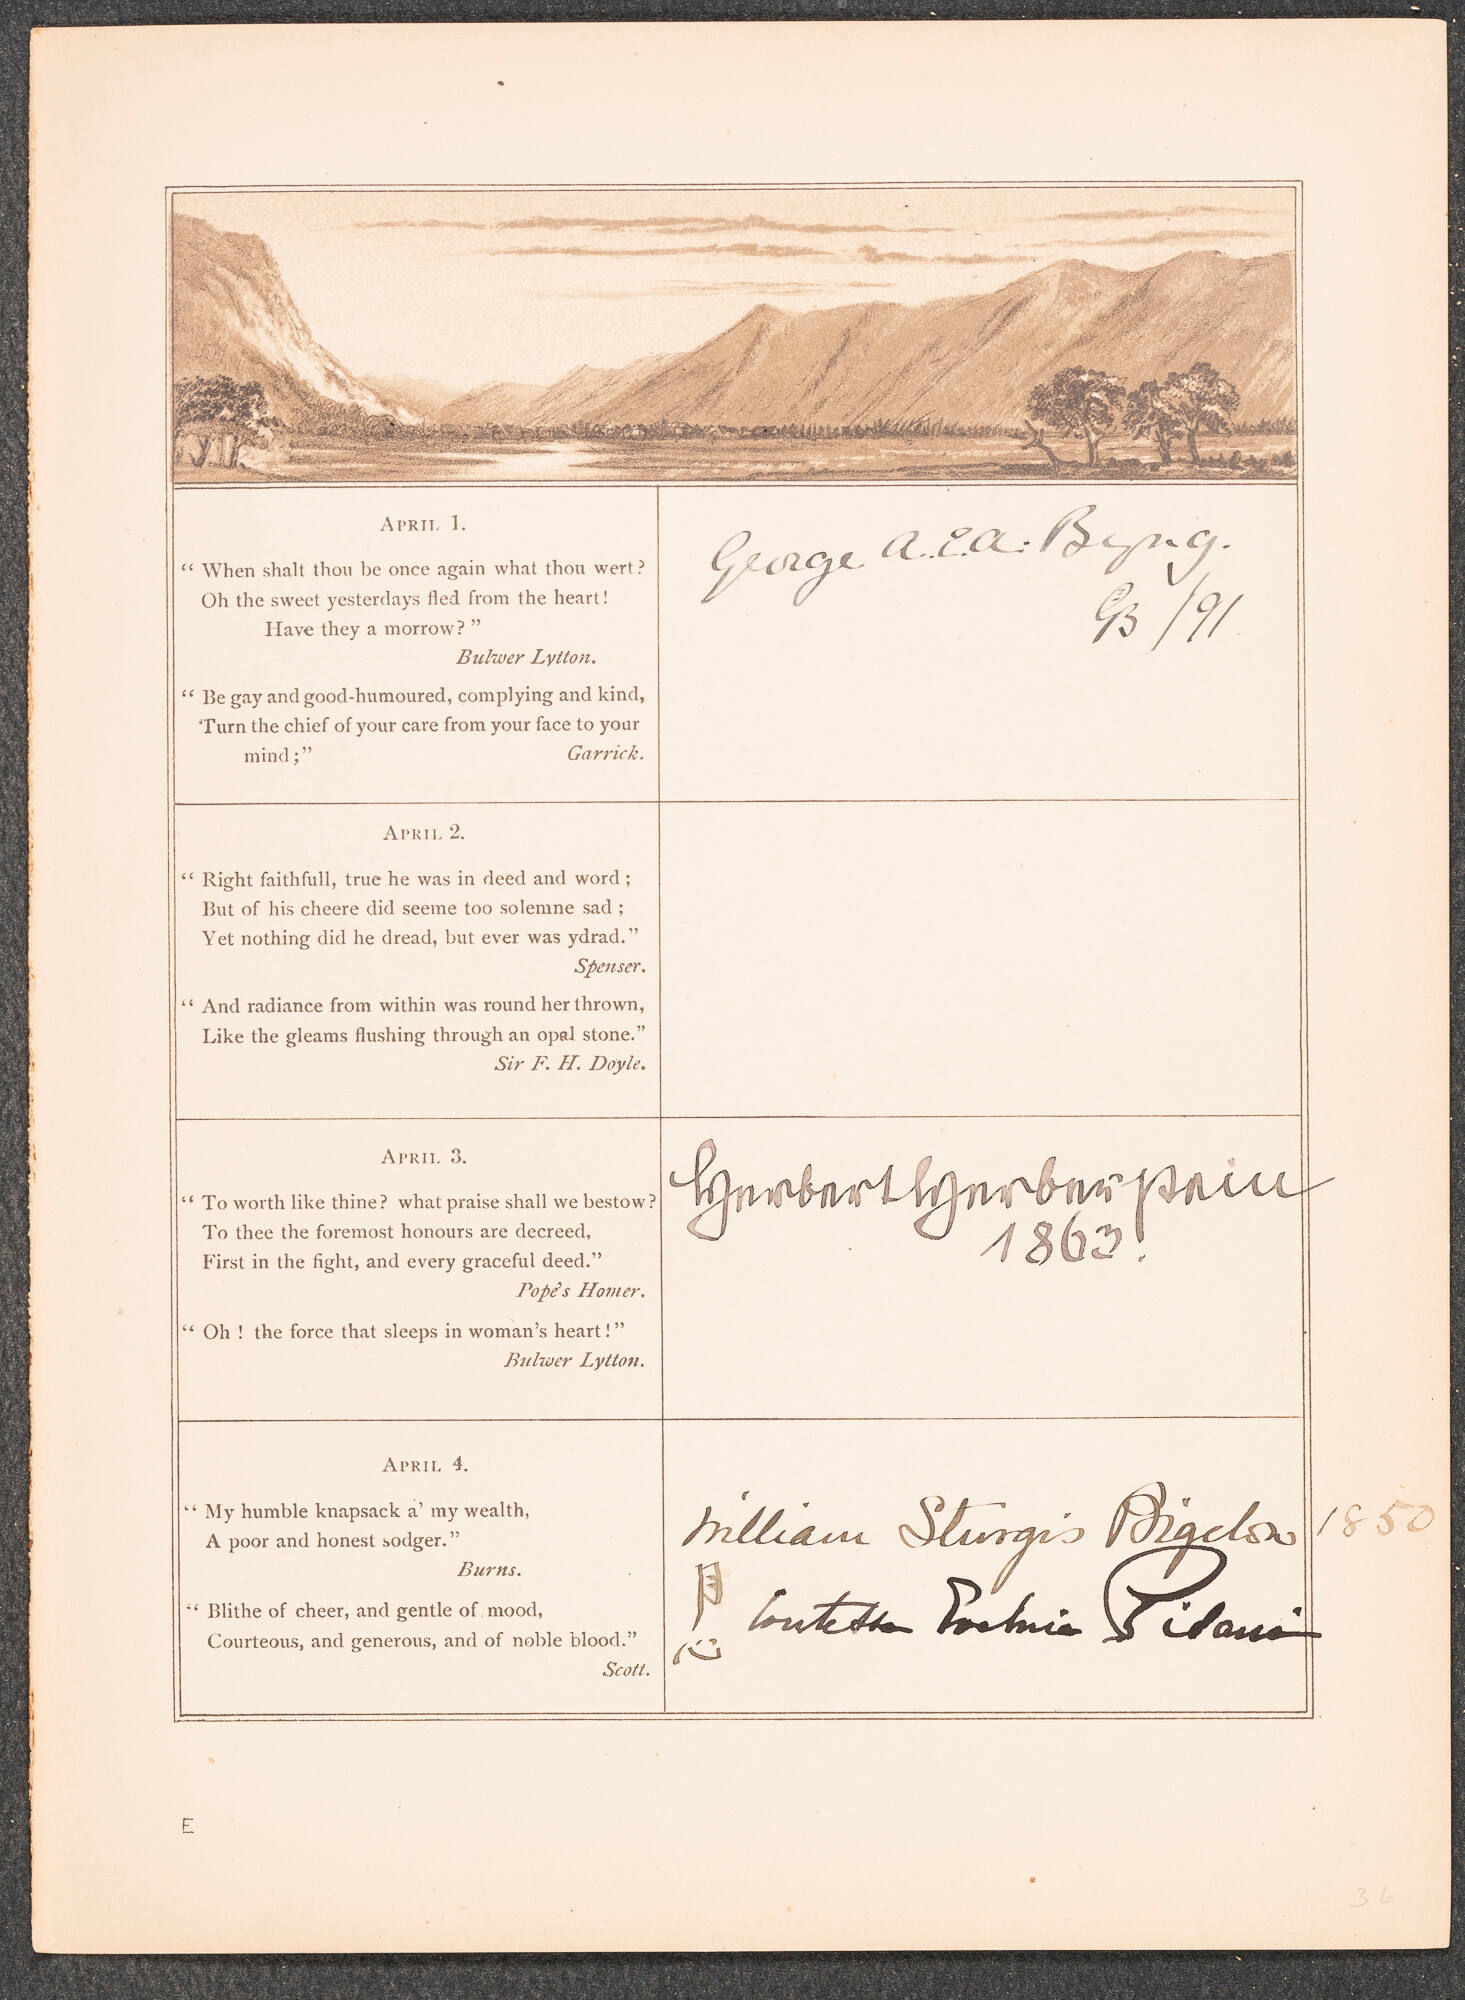 APRIL 1.
“ When shalt thou be once again what thou wert?
Oh the sweet yesterdays fled from the heart!
Have they a morrow? ”
Bulwer Lytton.
“ Be gay and good-humoured, complying and kind,
Turn the chief of your care from your face to your
mind ;”
Garrick.
George A..E.A: Byng.
/91
APRIL 2.
“ Right faithfull, true he was in deed and word ;
But of his cheere did seeme too solemne sad ;
Yet nothing did he dread, but ever was ydrad.”
Spenser.
“ And radiance from within was round her thrown,
Like the gleams flushing through an opal stone.”
Sir F. H. Doyle.
APRIL 3.
“ To worth like thine? what praise shall we bestow?
To thee the foremost honours are decreed,
First in the fight, and every graceful deed.”
Pope's Homer.
“ Oh ! the force that sleeps in woman's heart!”
Bulwer Lytton.
Herbert Herberstein
1863.
APRIL 4.
“ My humble knapsack a' my wealth,
A poor and honest sodger.”
Burns.
“ Blithe of cheer, and gentle of mood,
Courteous, and generous, and of noble blood.”
Scott.
William Sturgis Bigelow 1850
Contessa Evelina Pisani
E
36